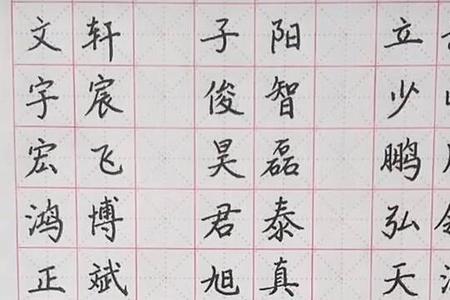 文轩 子阳 立
宇宸 俊智 少
宏飞 昊磊 鹏
鸿博 君泰 弘
正斌 旭真 天